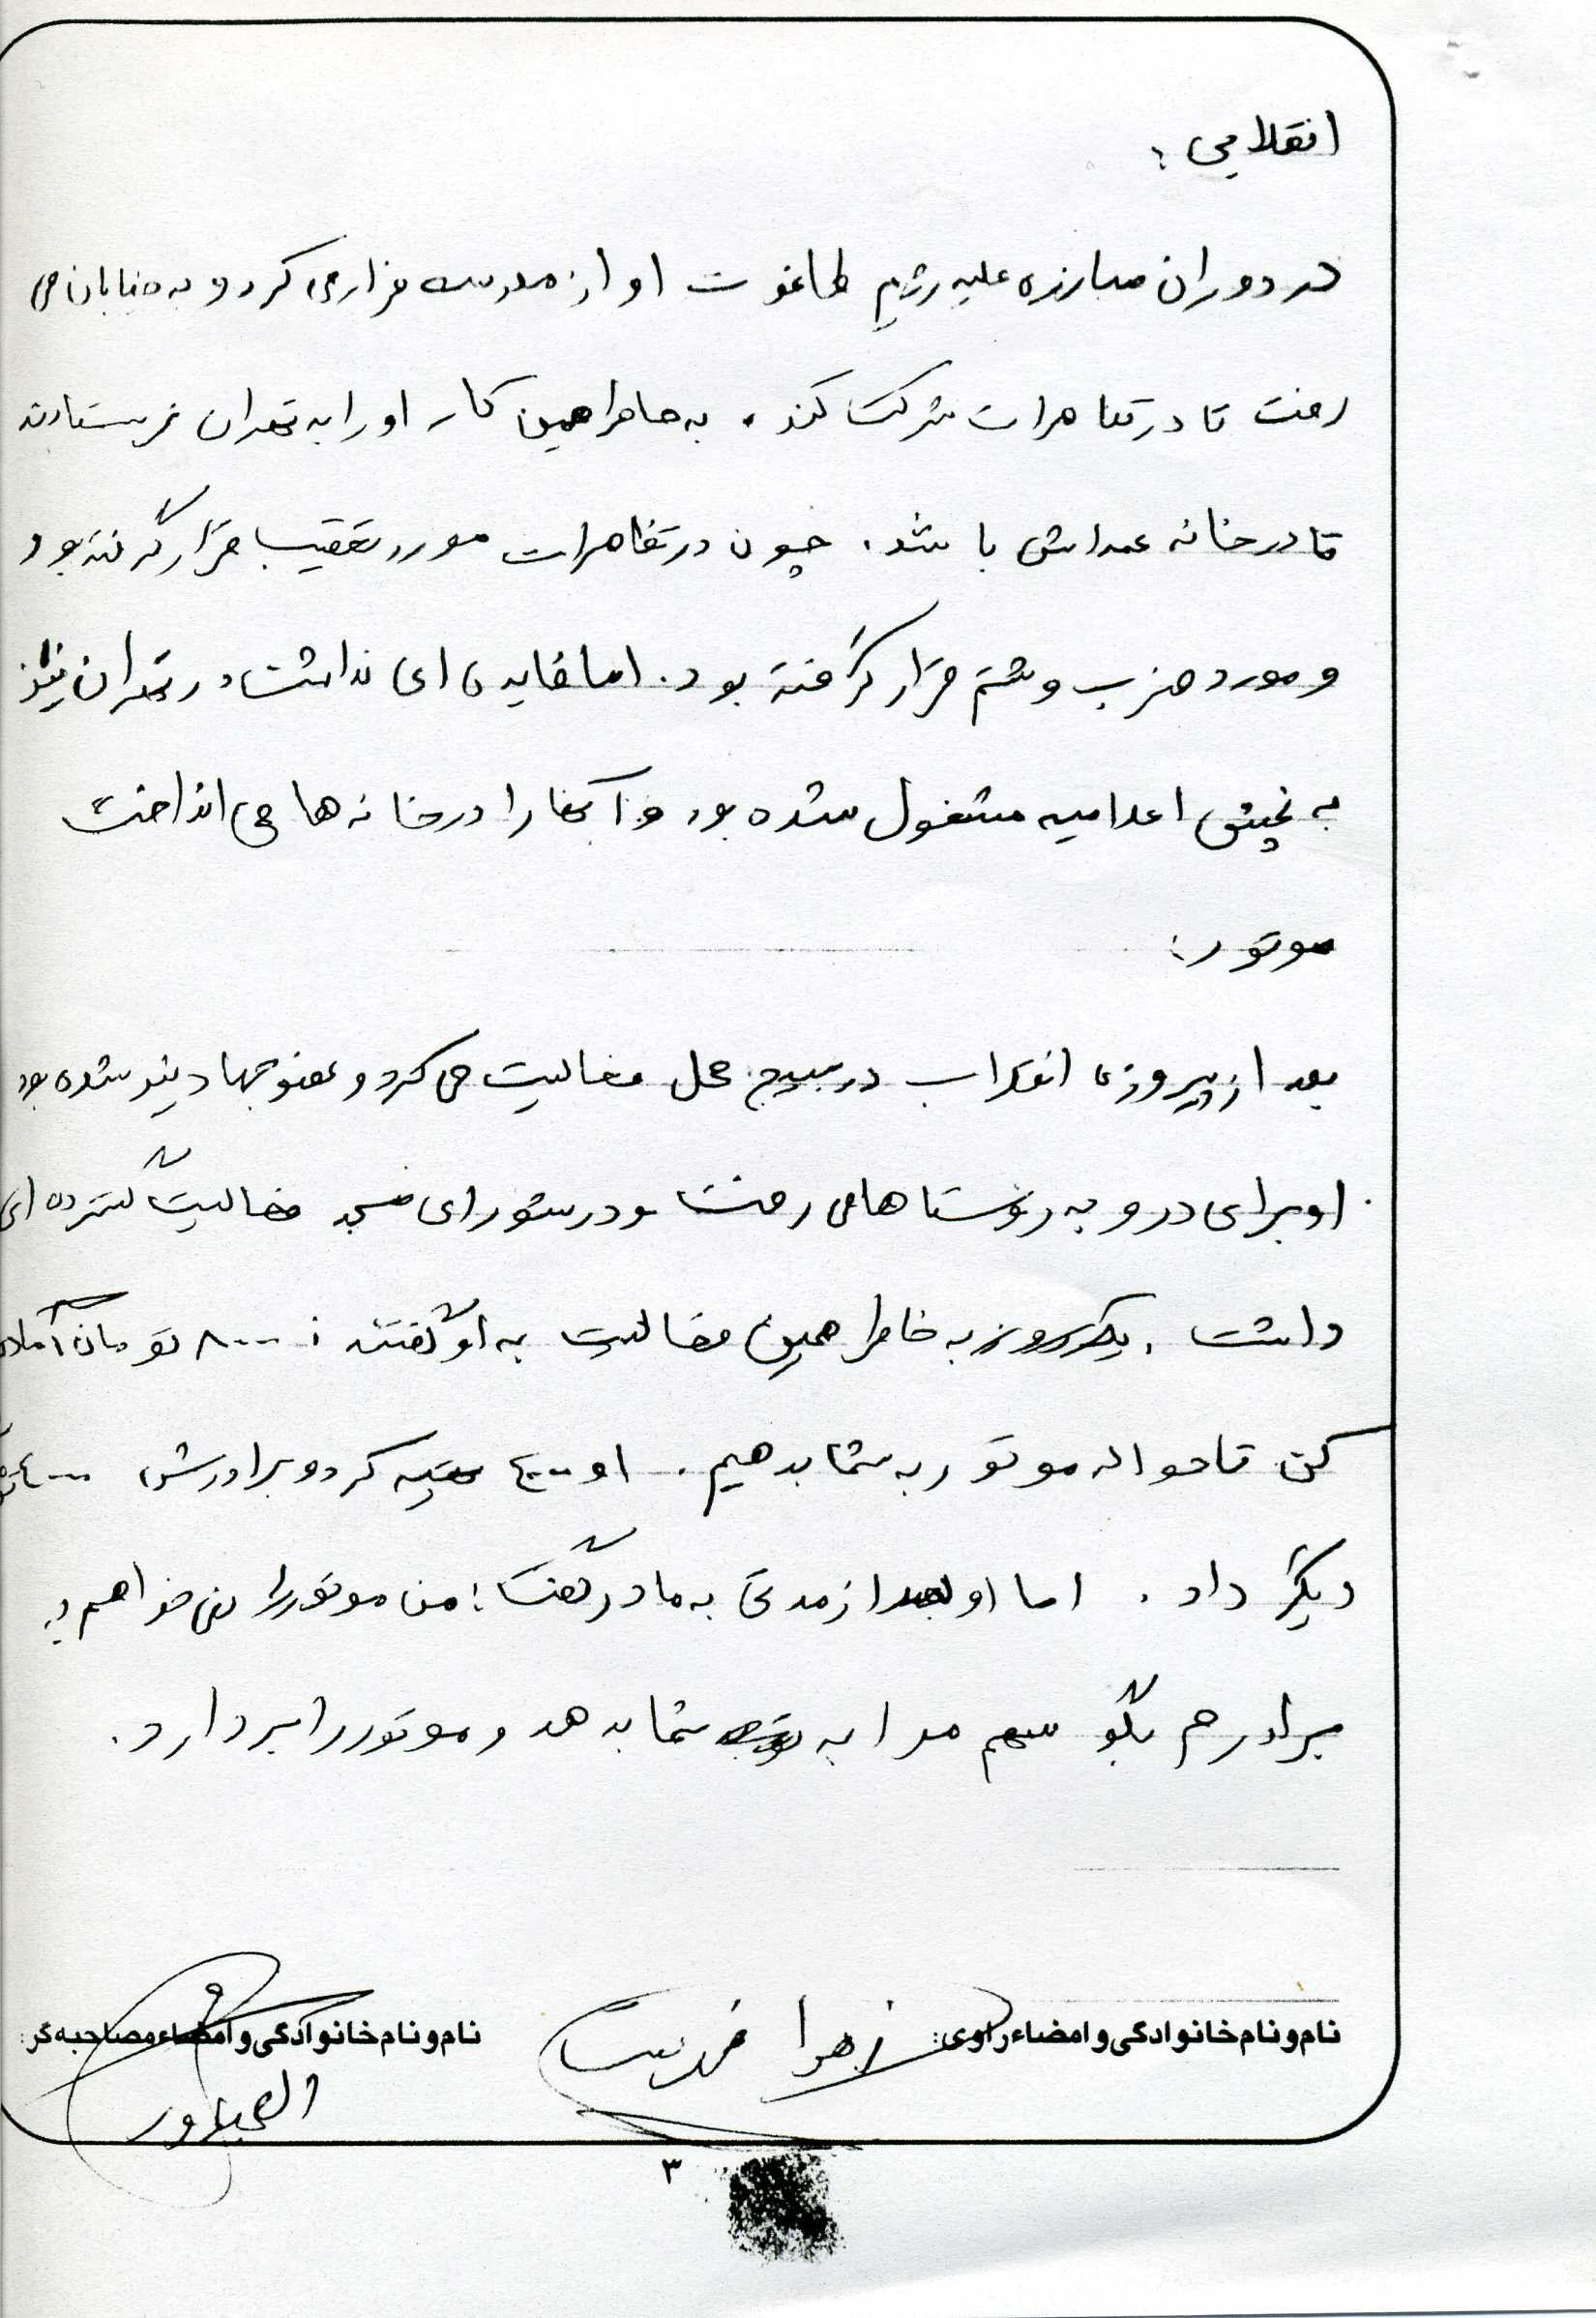 انقلابی :
در دوران مبارزه علیه رژیم طاغوت او از مدرسه فرار می کرد و به خیابان می
رفت تا در تظاهرات شرکت کند . به خاطر همین کار او را به تهران فرستادند
تا در خانه عمه اش باشد . چون در تظاهرات مورد تعقیب قرار گرفته بود
و مورد ضرب و شتم قرار گرفته بود . اما فایده ای نداشت در تهران نیز
به پخش اعلامیه مشغول شده بود و آنها را در خانه ها می انداخت
موتور :
بعد از پیروزی انقلاب در بسیج محل فعالیت می کرد و عضو جهاد نیز شده بود
. او برای درو به روستاها می رفت و در شورای مسجد فعالیت گسترده ای
داشت . یکروز به خاطر همین فعالیت به او گفتند : ۸۰۰۰ تومان آماده
کن تا حواله موتور به شما بدهیم . او ۴۰۰۰ تهیه کرد و برادرش ۴۰۰۰
دیگر داد . اما او بعد از مدتی به مادر گفت : من موتور را نمی خواهم به
برادرم بگو سهم مرا به شما بدهد و موتور را بردارد .
نام و نام خانوادگی و امضاء راوی : زهرا
نام و نام خانوادگی و امضاء مصاحبه گر :
۳